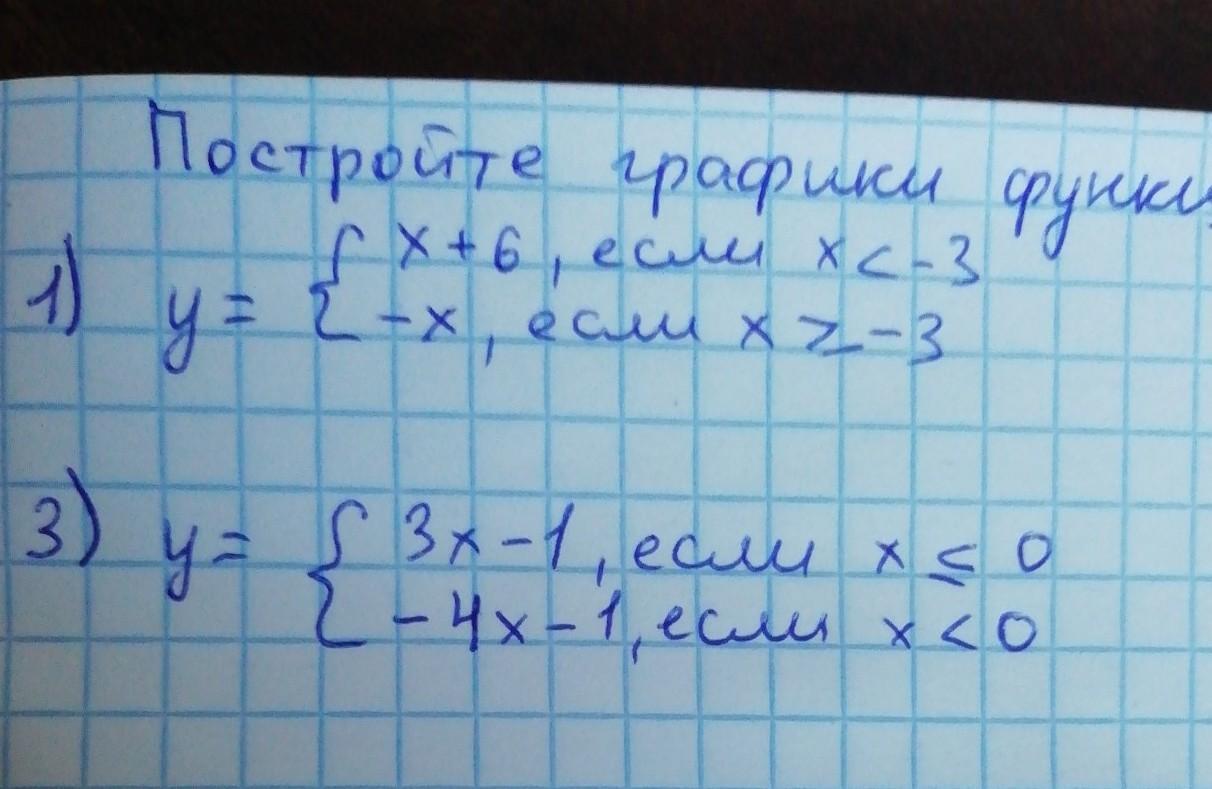 Постройте графики функц
1) y = { x + 6, если x < -3
-x, если x ≥ -3
3) y = { 3x - 1, если x ≤ 0
-4x - 1, если x < 0